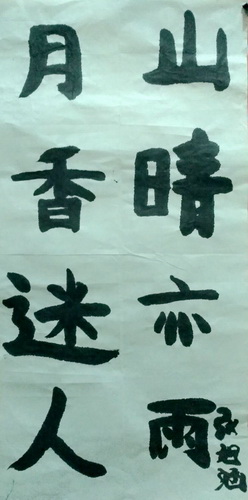 山晴亦雨
月香迷人